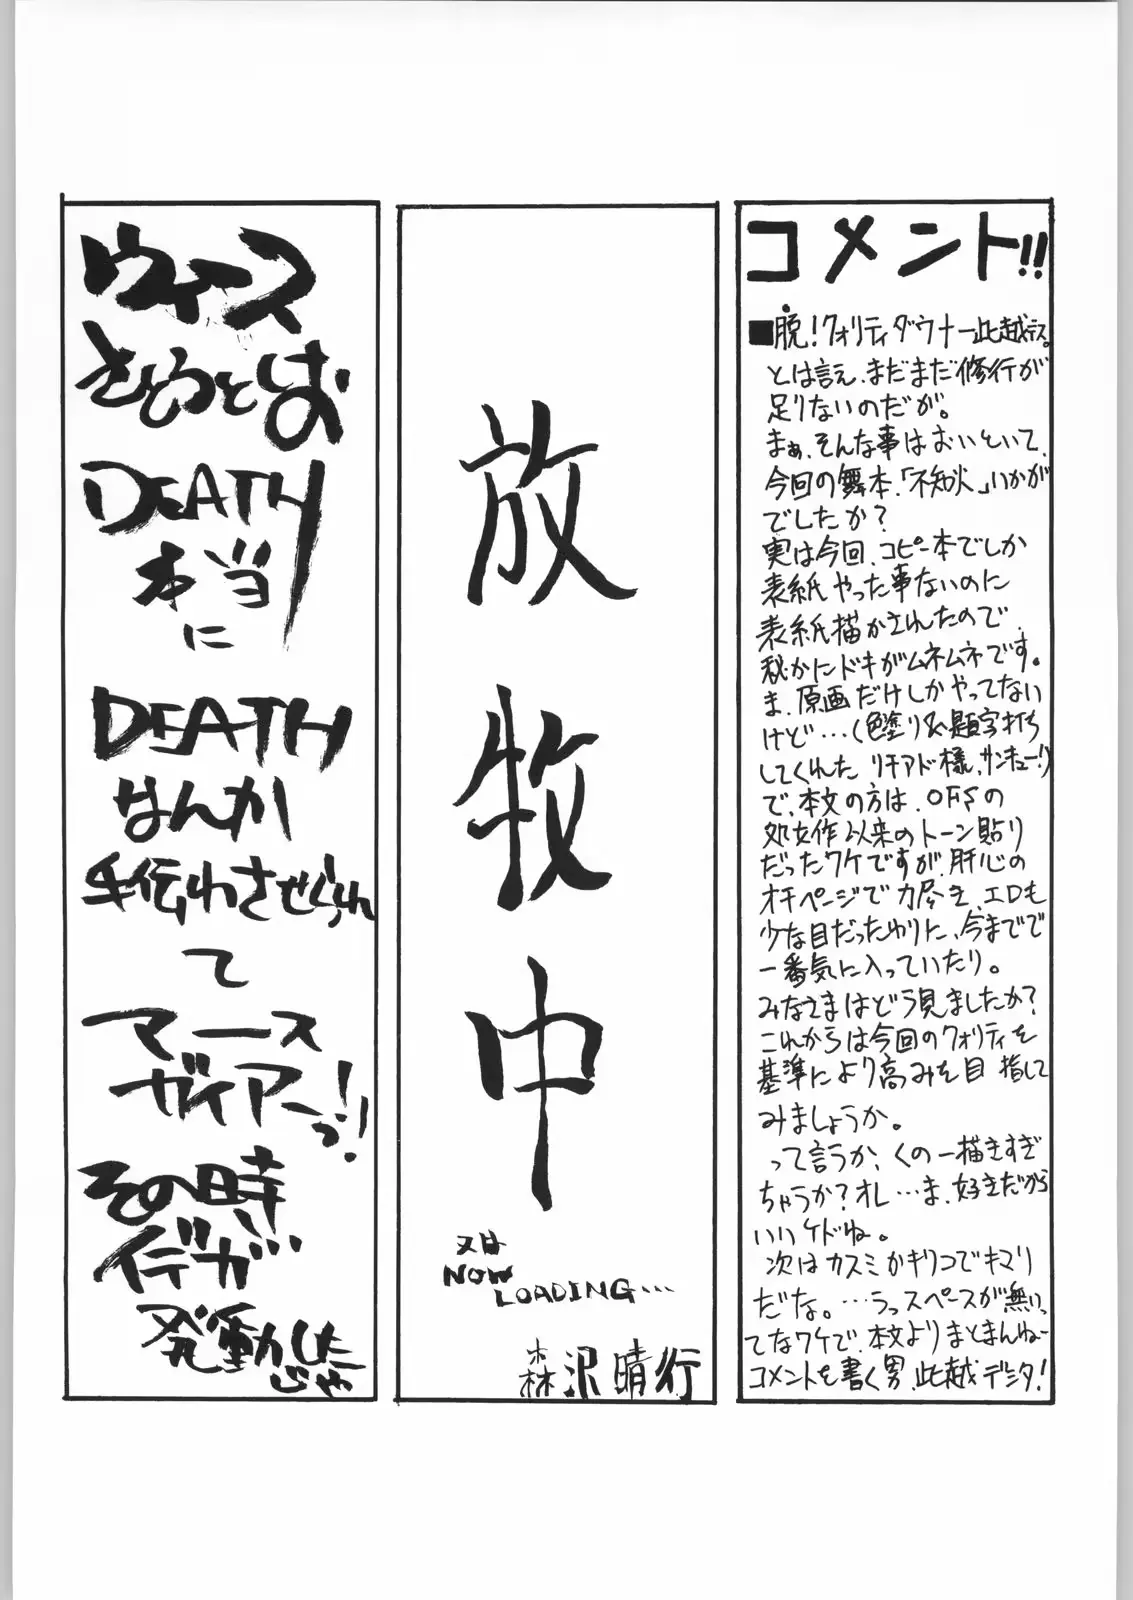 コメント!!
■脱!クォリティダウナー此越デス。
とは言え、まだまだ修行が
足りないのだが。
まぁ、そんな事はおいといて、
今回の舞本、「不知火」いかが
でしたか?
実は今回、コピー本でしか
表紙やった事ないのに
表紙描かされたので、
秘かにドキがムネムネです。
ま、原画だけしかやってない
けど…(色塗り&題字打ち
してくれたリチアド様、サンキュー!)
で、本文の方は、OFSの
処女作以来のトーン貼り
だったワケですが、肝心の
オチページで力尽き、エロも
少な目だったわりに、今までで
一番気に入っていたり。
みなさまはどう見ましたか?
これからは今回のクォリティを
基準により高みを目指して
みましょうか。
って言うか、くの一描きすぎ
ちゃうか?オレ…ま、好きだから
いいケドね。
次はカスミかキリコでキマリ
だな。…うっスペースが無いっ
てなワケで、本文よりまとまんねー
コメントを書く男、此越デジタ!
放牧中
又は
NOW
LOADING…
森沢晴行
ウィース
さとうとしお
DEATH
本当
に
DEATH
なんか
手伝わさせられ
て
マース
ガイアーっ!!
その時
イデが…
発動した
じゃ